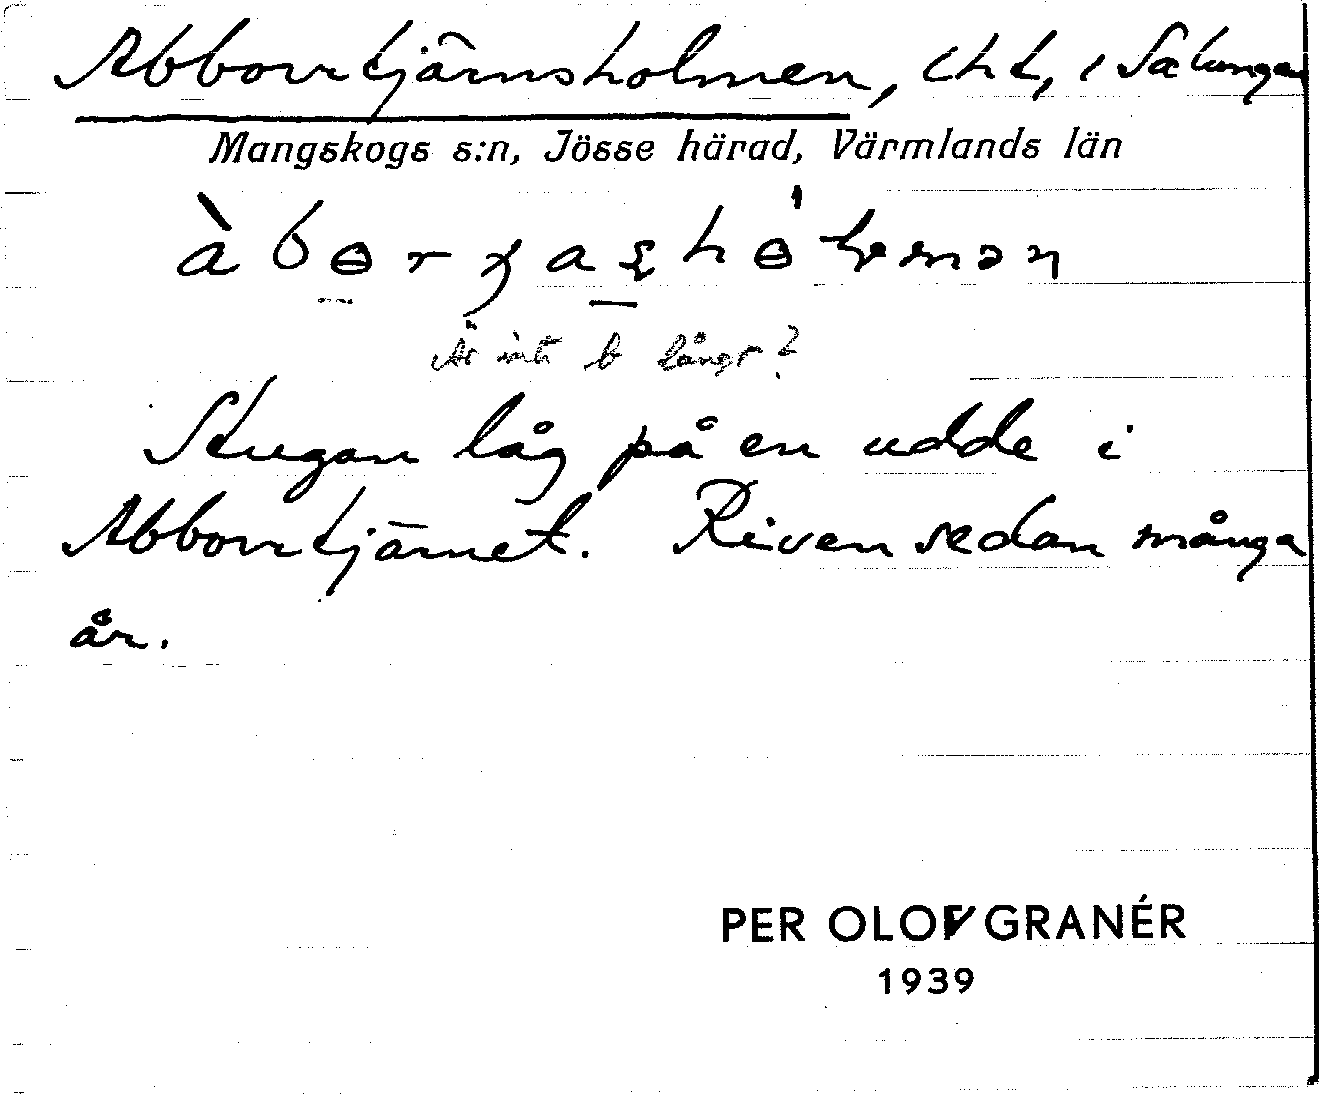 Abborrtjärnsholmen, i Sälungen
Mangskogs s:n, Jösse härad, Värmlands län
Är inte b långt?
Stugan låg på en udde i
Abborrtjärnet. Riven sedan många
år.
PER OLOV GRANÉR
1939